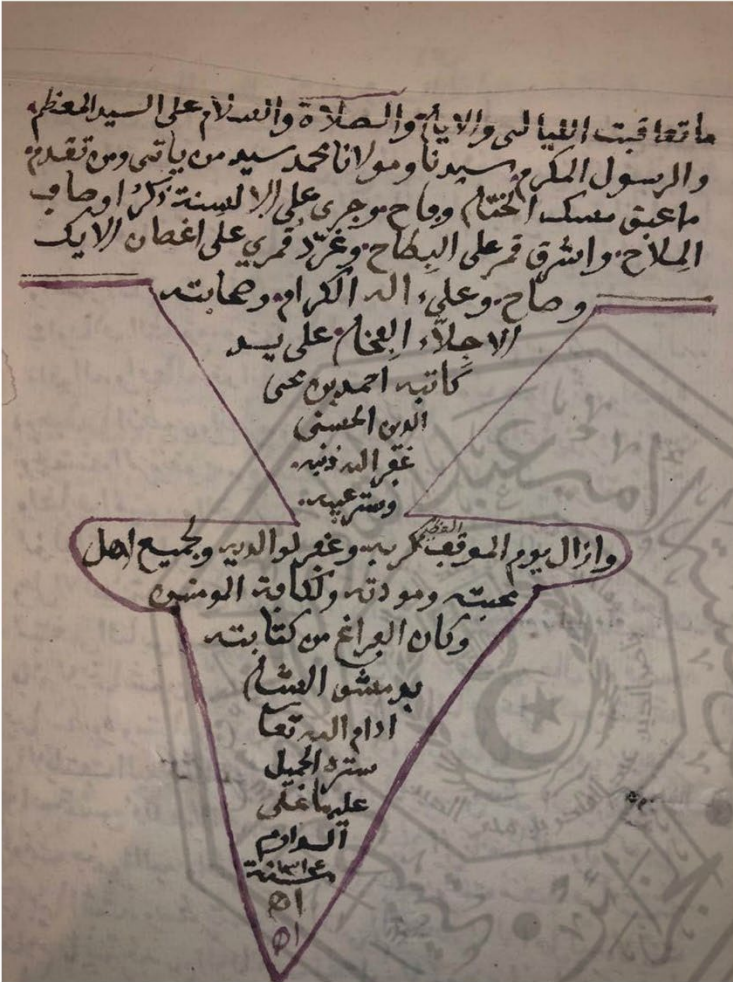 ما تعاقبت الليالى والايام والصلاة والسلام على السيد المعظم.
والرسول المكرم. سيدنا ومولانا محمد سيد من ياتى ومن تقدم.
ما عبق مسك الختام وفاح. وجرى على الالسنة ذكر اوصاف
الملاح. واشرق قمر على البطاح. وغرّد قمري على اغصان الايك
وصاح. وعلى ءاله الكرام. وصحابته
الاجلاّء الفخام. على يد
كاتبه احمد بن محى
الدين الحسنى
غفر الله ذنبه.
وستر عيبه.
وازال يوم الموقف العظيم كربه وغفر لوالديه ولجميع اهل
محبته ومودته ولكافة المومنين
وكان الفراغ من كتابته
بدمشق الشام
ادام الله تعا
ستره الجميل
علينا على
الدوام
سنة ١٣١٤
اه
اه